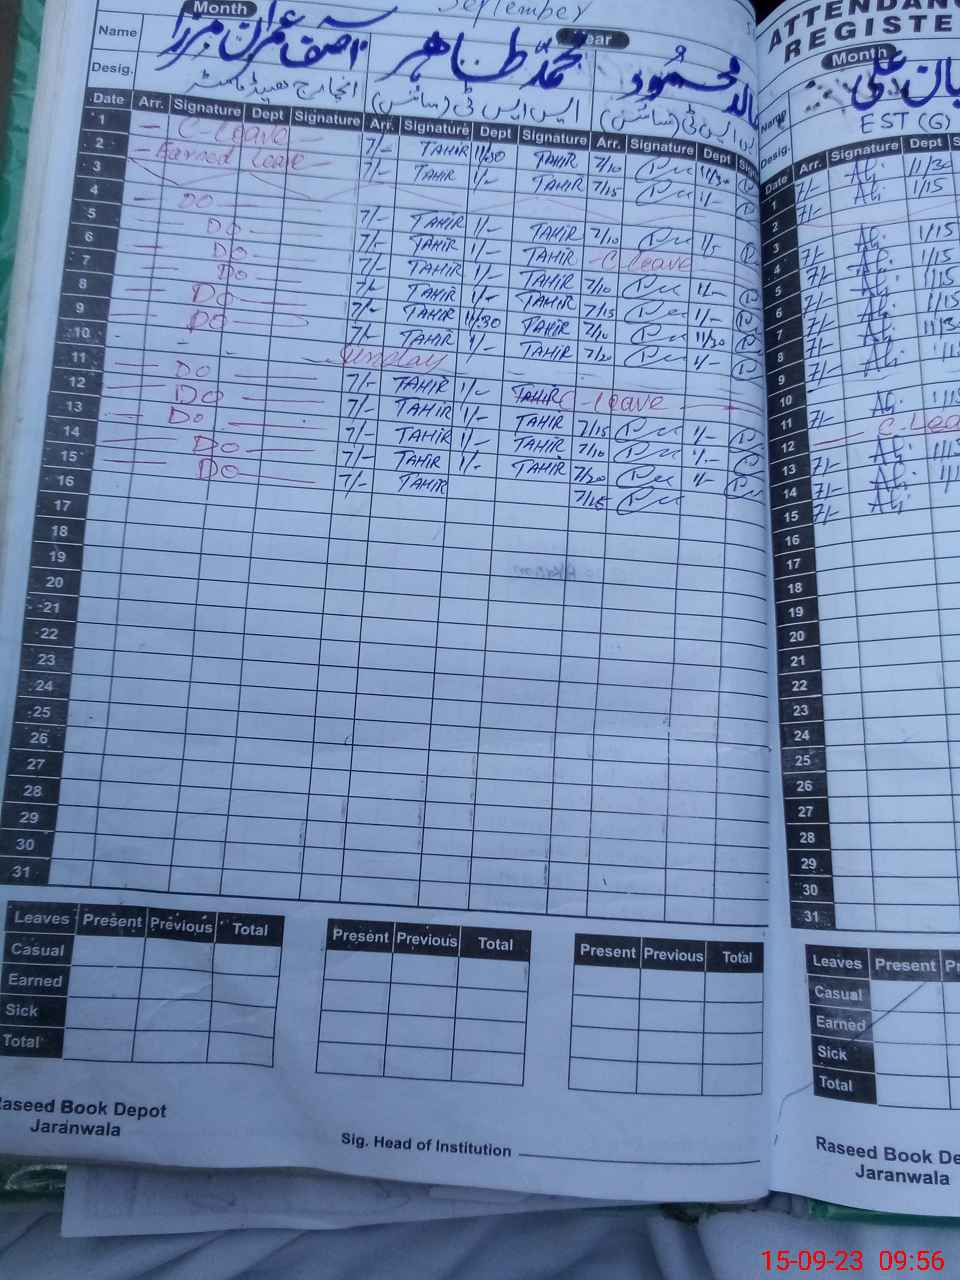 Month September
Year
Name آصف عمران مرزا محمد طاہر محمود
Desig. انچارج ہیڈ ماسٹر ایس ایس ٹی (سائنس) ایس ٹی (سائنس)
Date Arr. Signature Dept Signature Arr. Signature Dept Signature Arr. Signature Dept
1 — C-leave — 7/- TAHIR 11/30 TAHIR 7/10 11/30
2 — Earned leave — 7/- TAHIR 1/- TAHIR 7/15 1/-
3
4 — DO — 7/- TAHIR 1/- TAHIR 7/10
5 — DO — 7/- TAHIR 1/- TAHIR C-leave
6 — DO — 7/- TAHIR 1/- TAHIR 7/10 1/-
7 — DO — 7/- TAHIR 1/- TAHIR 7/15 1/-
8 — DO — 7/- TAHIR 11/30 TAHIR 7/10 11/30
9 — DO — 7/- TAHIR 1/- TAHIR 7/20 1/-
10 Sunday
11 — DO — 7/- TAHIR 1/- TAHIR C-leave
12 — DO — 7/- TAHIR 1/- TAHIR 7/15 1/-
13 — DO — 7/- TAHIR 1/- TAHIR 7/10 1/-
14 — DO — 7/- TAHIR 1/- TAHIR 7/20 1/-
15 — DO — 7/- TAHIR 7/15
16
17
18
19
20
21
22
23
24
25
26
27
28
29
30
31
Leaves Present Previous Total Present Previous Total Present Previous Total
Casual
Earned
Sick
Total
Raseed Book Depot
Jaranwala
Sig. Head of Institution
ATTENDANC
REGISTE
Month
Name علی
Desig. EST (G)
Date Arr. Signature Dept
1 7/- Ali 11/30
2 7/- Ali 1/15
3
4 7/- Ali 1/15
5 7/- Ali 1/15
6 7/- Ali 1/15
7 7/- Ali 1/15
8 7/- Ali 11/30
9 7/- Ali 1/15
10
11 7/- Ali 1/15
12 — C-Lea
13 7/- Ali 1/15
14 7/- Ali 1/1
15 7/- Ali
16
17
18
19
20
21
22
23
24
25
26
27
28
29
30
31
Leaves Present
Casual
Earned
Sick
Total
Raseed Book De
Jaranwala
15-09-23 09:56